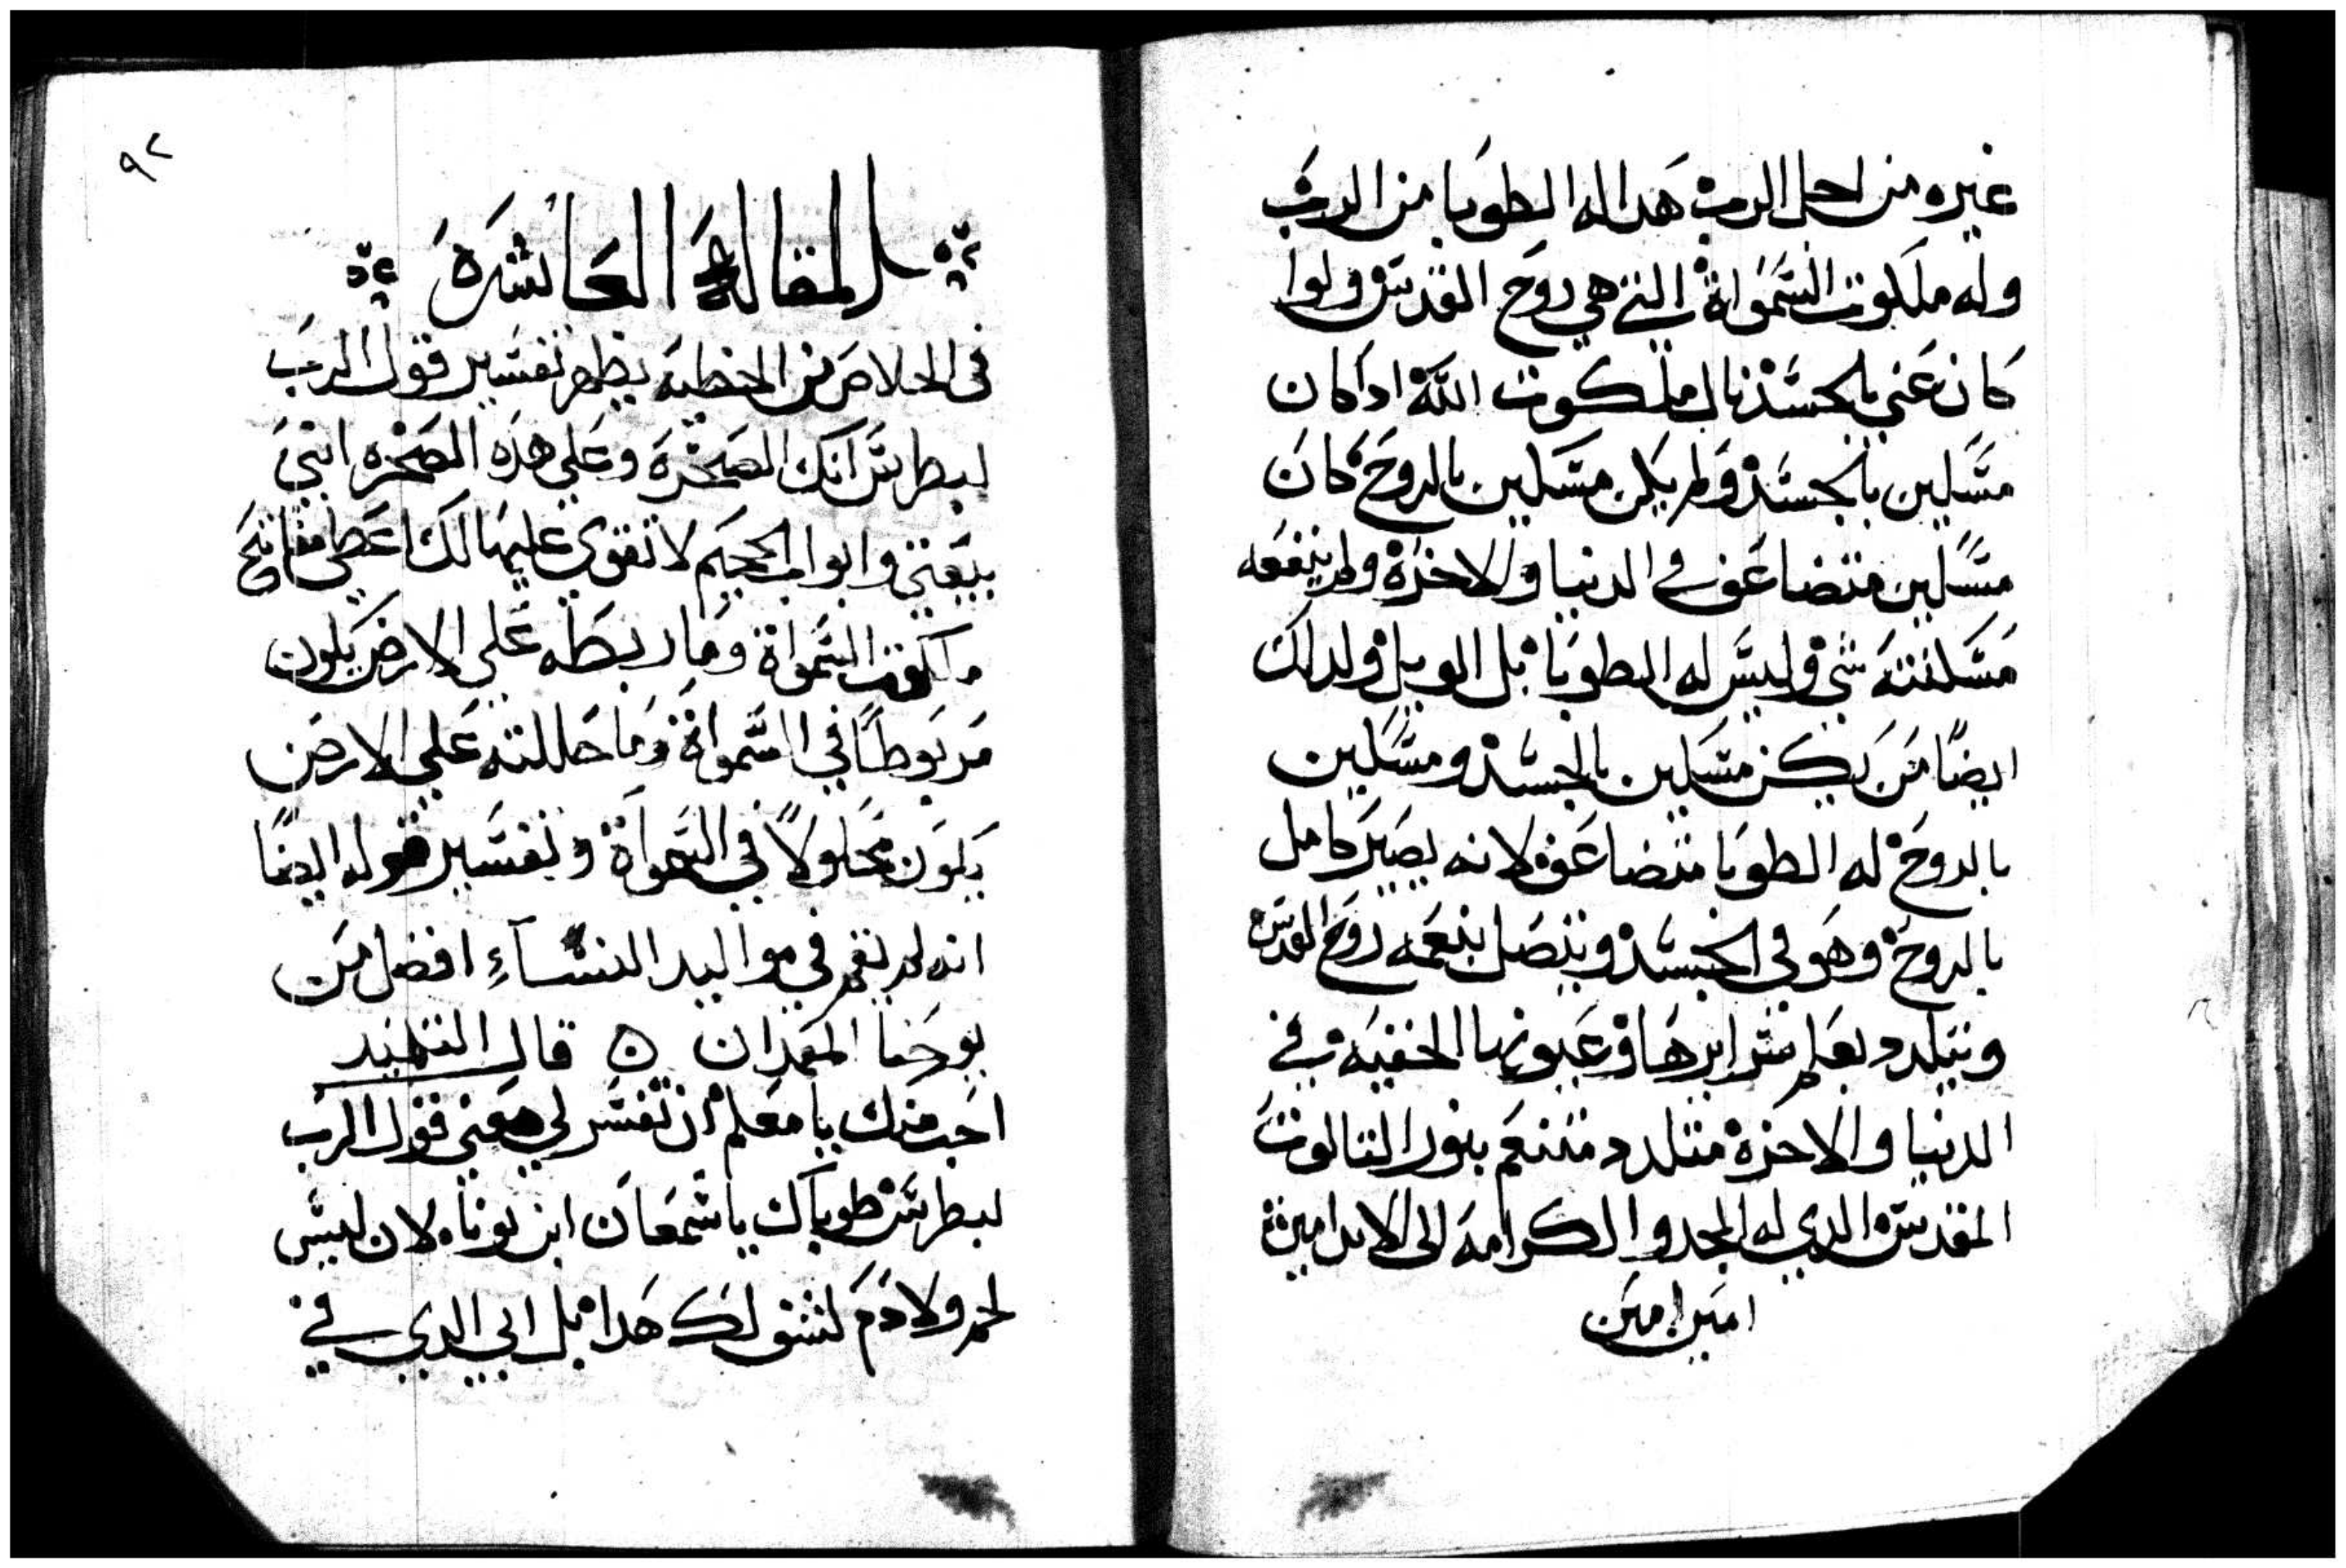 غيره من اجل الرب هدا له الطوبا من الرب
وله ملكوت السمواة التي هي روح القدس ولوا
كان غني بالجسد نال ملكوت الله ادا كان
مسلين بالجسد ولم يكن مسكين بالروح كان
مسكين متضاعف في الدنيا والاخرة ولم ينفعه
مسكنته شي وليس له الطوبا بل الويل ولدلك
ايضًا من يكن مسكين بالجسد ومسكين
بالروح له الطوبا متضاعفه لانه يصير كامل
بالروح وهو في الجسد ويتصل بنعمة روح القدس
ويتلدد بعلم سرايرها وعيونها الخفيه في
الدنيا والاخرة متلدد متنعم بنور التالوت
المقدس الدي له المجد والكرامه الى الابد امين
امين امين
٩٢
المقالة العاشرة
في الخلاص من الخطية يظهر تفسير قول الرب
لبطرس انك الصخرة وعلى هده الصخره ابني
بيعتي وابواب الجحيم لا تقوي عليها لك اعطي مفاتيح
ملكوت السمواة وما ربطه علي الارض يكون
مربوطًا في السمواة وما حاللته علي الارض
يكون محلولاً في السمواة وتفسير قوله ايضًا
انه لم يقم في مواليد النساءِ افضل من
يوحنا المعمدان ه قال التلميد
احب منك يا معلم ان تفسر لي معني قول الرب
لبطرس طوباك يا سمعان ابن يونا لان ليس
لحم ولا دم كشف لك هدا بل ابي الدي في